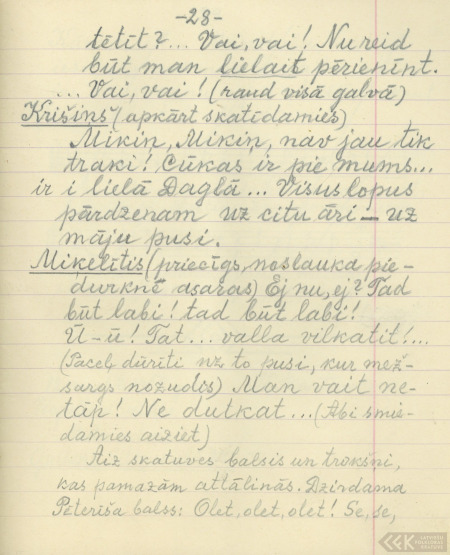 -28-
tētīt?... Vai, vai! Nu reid
būt man lielait pērienīnt.
... Vai, vai! (raud visā galvā)
Krišiņš (apkārt skatīdamies)
Mikiņ, Mikiņ, nav jau tik
traki! Cūkas ir pie mums...
ir i lielā Daglā... Visus lopus
pārdzenam uz citu āri — uz
māju pusi.
Miķelītis (priecīgs, noslauka pie-
durknē asaras) Ej nu, ej? Tad
būt labi! tad būt labi!
Ū-ū! Tat... valla vilkatit!...
(Paceļ dūrīti uz to pusi, kur mež-
sargs nozudis) Man vait ne-
tāp! Ne dutkat... (Abi smie-
damies aiziet)
Aiz skatuves balsis un trokšņi,
kas pamazām attālinās. Dzirdama
Pēterīša balss: Olet, olet, olet! Se, se,
LATVIEŠU
FOLKLORAS
KRĀTUVE